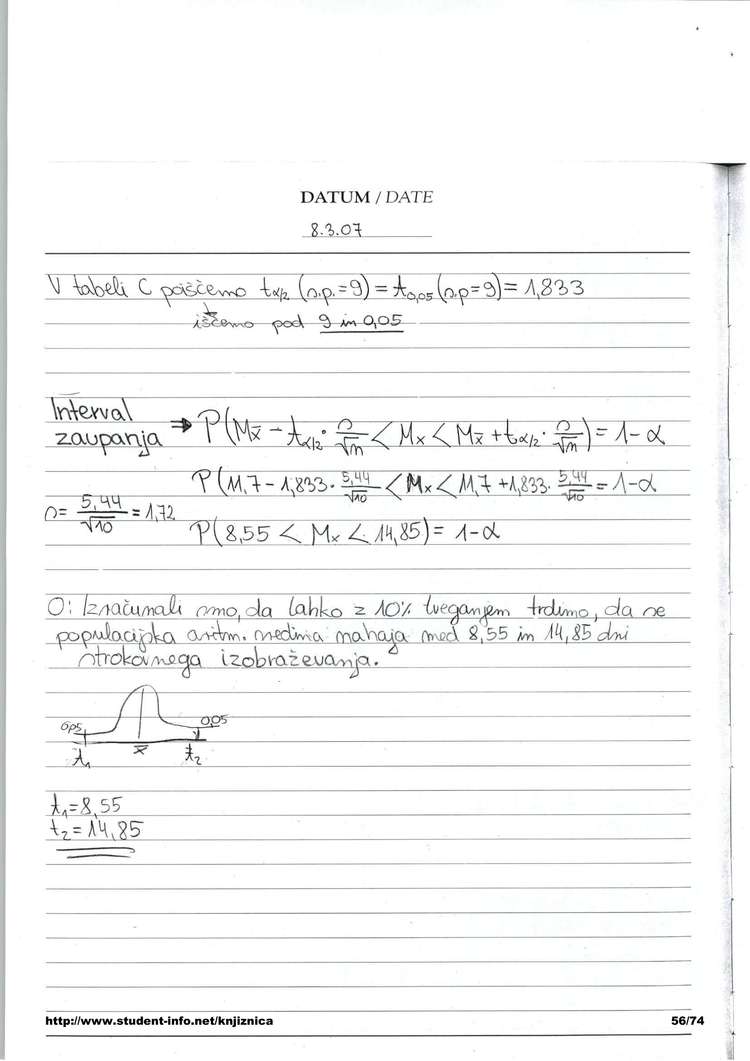 DATUM / DATE
8.3.07
V tabeli C poiščemo t α/2 (s.p.=9) = t 0,05 (s.p=9) = 1,833
iščemo pod 9 in 0,05
Interval
zaupanja ⇒ P(Mx̄ - tα/2 · s/√n < Mx < Mx̄ + tα/2 · s/√n) = 1-α
P(11,7 - 1,833 · 5,44/√10 < Mx < 11,7 + 1,833 · 5,44/√10 = 1-α
s = 5,44/√10 = 1,72
P(8,55 < Mx < 14,85) = 1-α
O: Izračunali smo, da lahko z 10% tveganjem trdimo, da se
populacijska aritm. sredina nahaja med 8,55 in 14,85 dni
strokovnega izobraževanja.
0,05 0,05
t₁ x̄ t₂
t₁=8,55
t₂=14,85
http://www.student-info.net/knjiznica 56/74